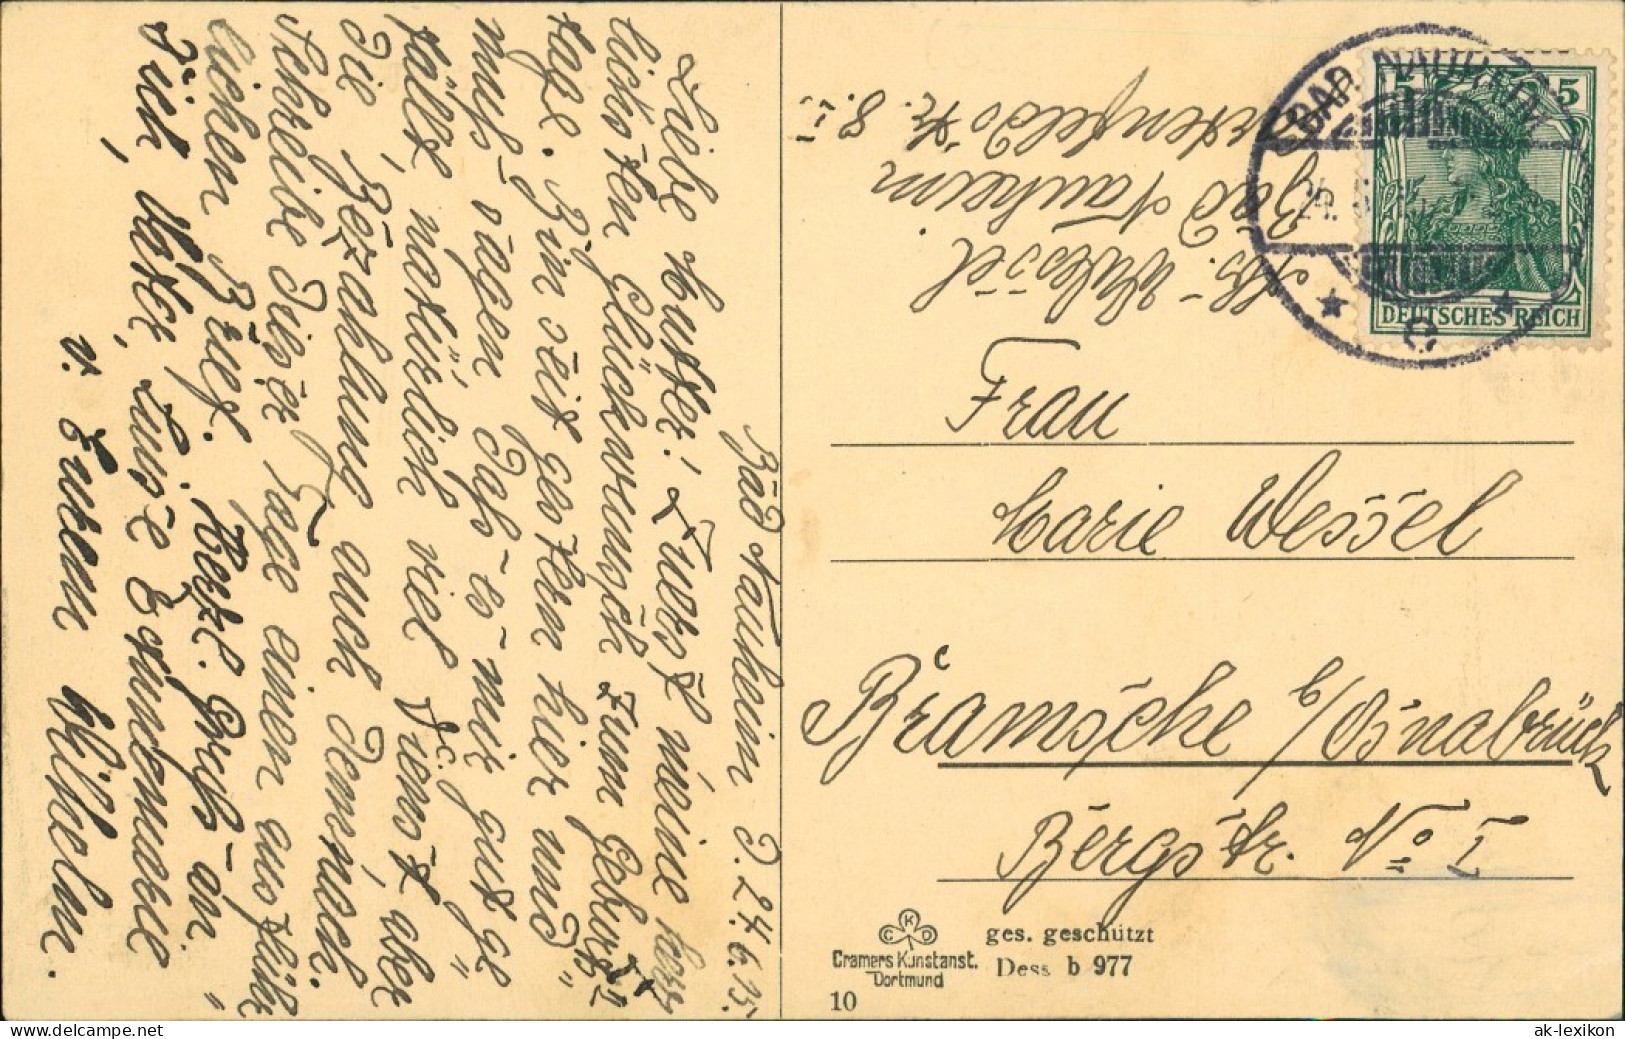 Bad Nauheim d. 24.6.15.
Liebe Mutter! Zuerst meine herz
lichsten Glückwünsche zum Geburts
tage. Bin seit gestern hier und
muß sagen daß es mir gut ge
fällt natürlich viel Dienst, aber
die Bezahlung auch demnach.
Schreibe dieser Tage einen ausführ
lichen Brief. Herzl. Gruß an
Dich, Vater,
v. Eurem Wilhelm.
Abs. Wessel
Bad Nauheim
str. 8. I
BAD NAUHEIM
5 5
DEUTSCHES REICH
Frau
Marie Wessel
Bramsche b/Osnabrück
Bergstr. No 1
CKD
Cramers Kunstanst.
Dortmund
ges. geschützt
Dess b 977
10
ak-lexikon